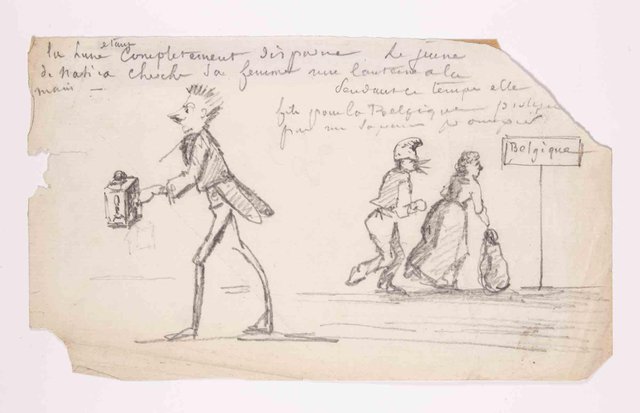 la Lune etant Completement disparue Le jeune
de cherche sa femme une lanterne a la
main —
Pendant ce temps elle
file pour la Belgique
par un Sapeur pompier
Belgique